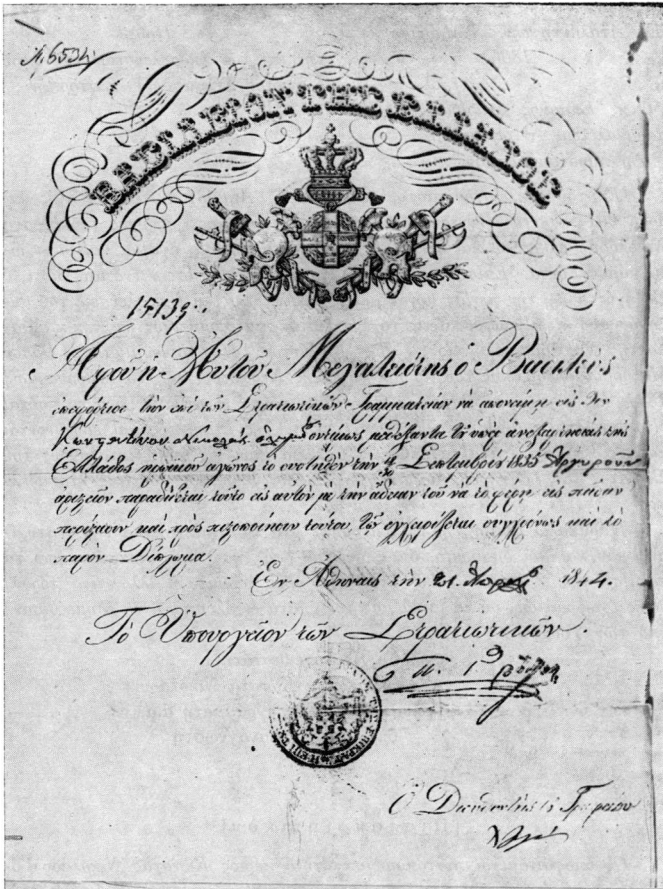 Α, 6534
ΒΑΣΙΛΕΙΟΝ ΤΗΣ ΕΛΛΑΔΟΣ
Ἀφοῦ ἡ Αὐτοῦ Μεγαλειότης ὁ Βασιλεὺς
τὴν ἐπὶ τῶν Στρατιωτικῶν Γραμματείαν νὰ ἀπονείμῃ εἰς τὸν
Κωνσταντῖνον τοῦ ὑπὲρ ἀνεξαρτησίας τῆς
Ἑλλάδος ἀγῶνος τὸ συστηθὲν τὴν Σεπτεμβρίου 1835 Ἀργυροῦν
ἀριστεῖον παραδίδεται τοῦτο εἰς αὐτὸν μὲ τὴν ἄδειαν τοῦ νὰ τὸ φέρῃ εἰς πᾶσαν
περίστασιν καὶ πρὸς πιστοποίησιν τούτου, τῷ ἐγχειρίζεται συγχρόνως καὶ τὸ
παρὸν Δίπλωμα.
Ἐν Ἀθήναις τὴν 21 1844.
Τὸ Ὑπουργεῖον τῶν Στρατιωτικῶν.
Ὁ Διευθυντὴς τοῦ Γραφείου